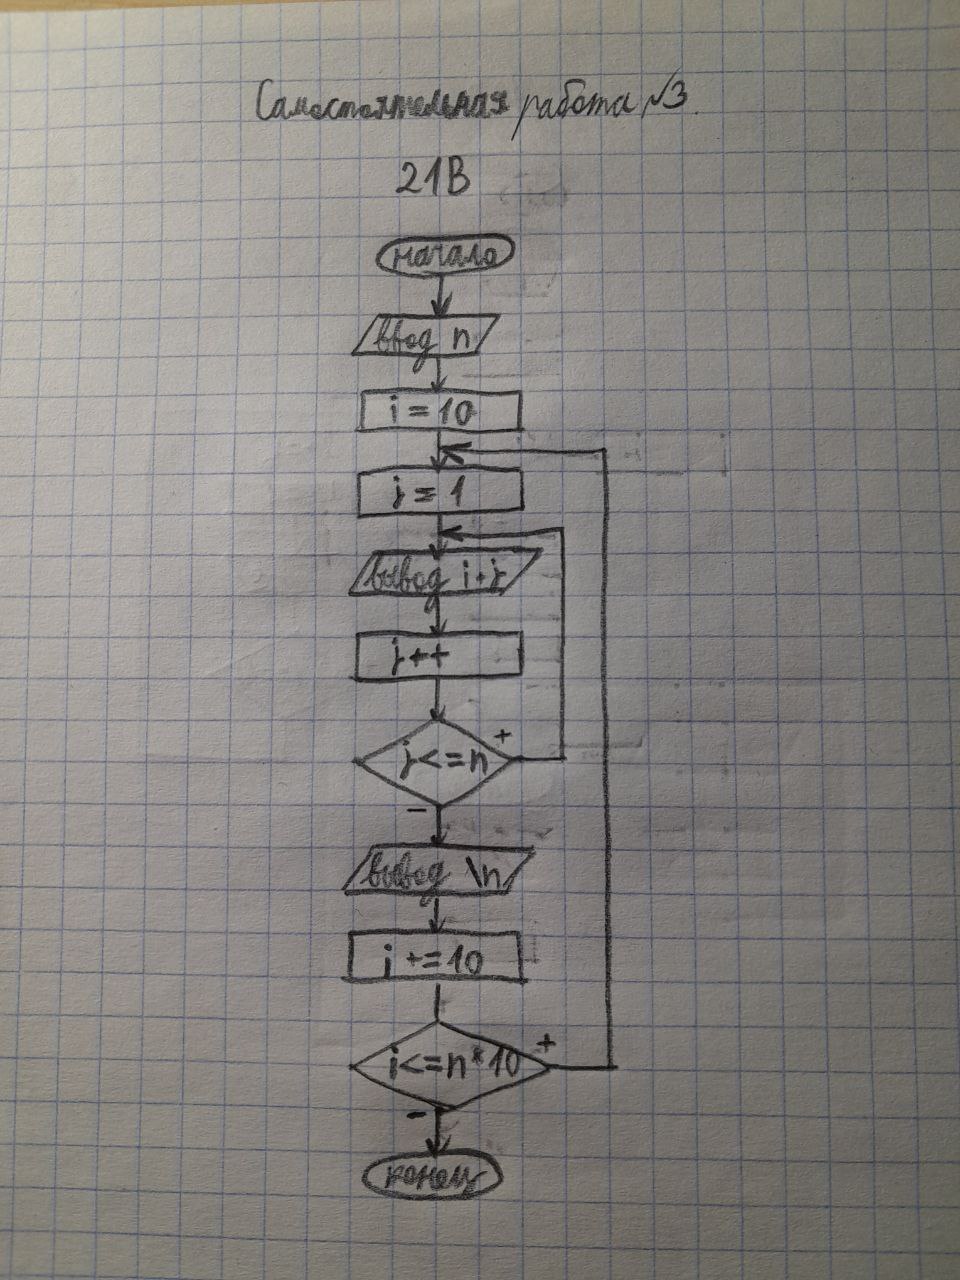 Самостоятельная работа №3.
21В
начало
ввод n
i = 10
j = 1
вывод i+j
j++
j<=n
+
-
вывод \n
i +=10
i<=n*10
+
-
конец